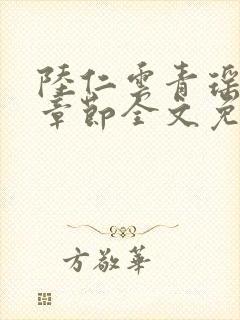 陸仁雲青瑶
章節全文免
方敬華